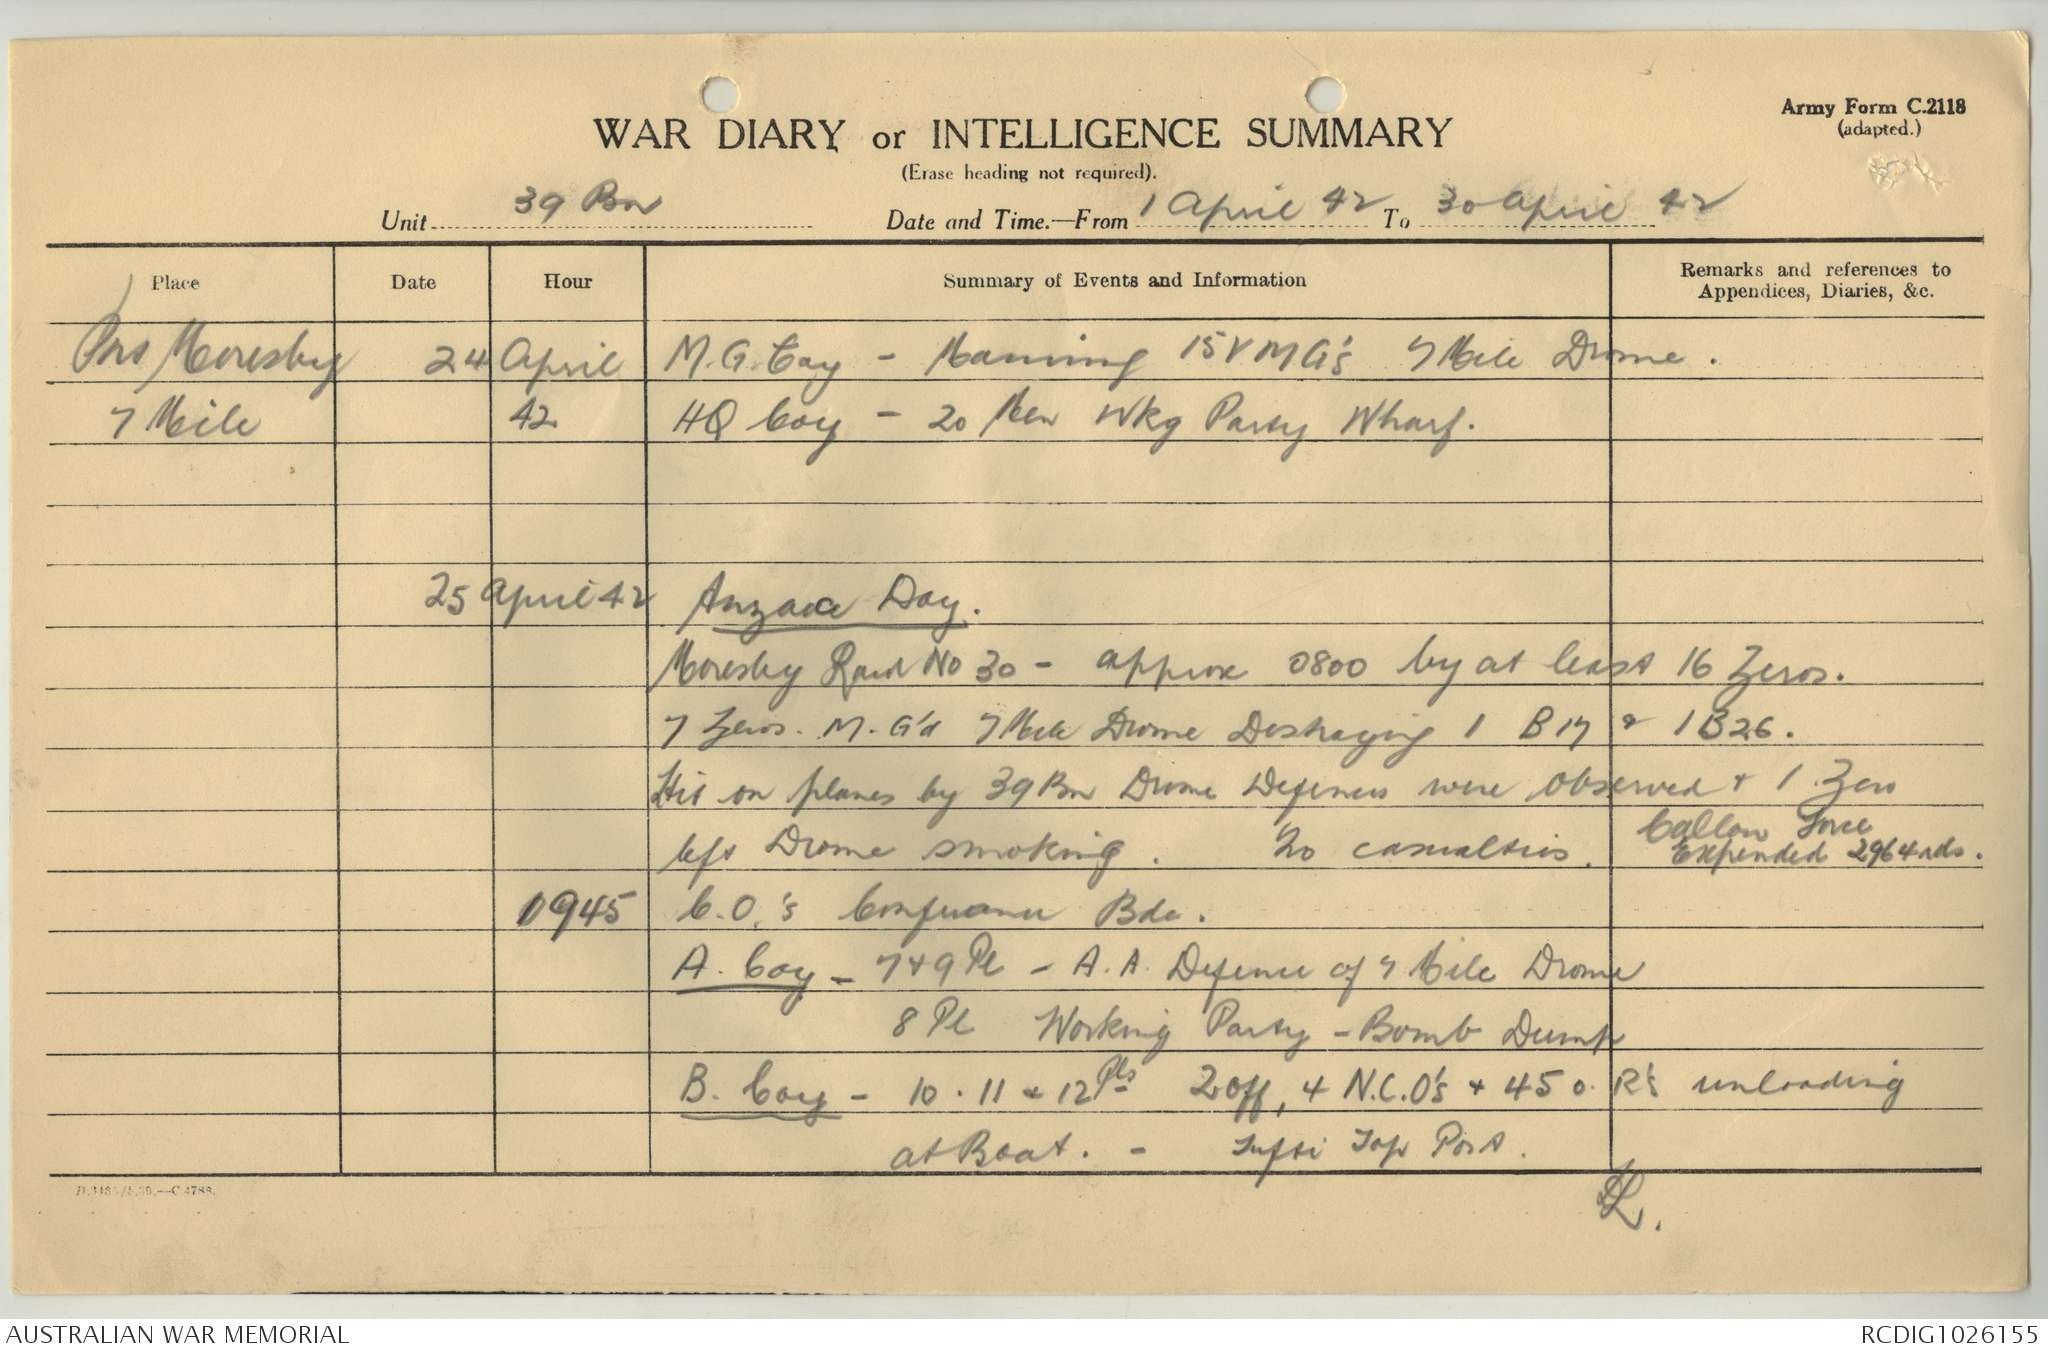 Army Form C.2118
(adapted.)
WAR DIARY or INTELLIGENCE SUMMARY
(Erase heading not required).
Unit 39 Bn Date and Time.—From 1 April 42 To 30 April 42
Place Date Hour Summary of Events and Information Remarks and references to Appendices, Diaries, &c.
Port Moresby 24 April M.G. Coy - Manning 15 V M G's 7 Mile Drome.
7 Mile 42 HQ Coy - 20 Men Wkg Party Wharf.
25 April 42 Anzac Day.
Moresby Raid No 30 - approx 0800 by at least 16 Zeros.
7 Zeros. M.G'd 7 Mile Drome Destroying 1 B17 & 1 B26.
Hits on planes by 39 Bn Drome Defences were observed & 1 Zero
left Drome smoking. No casualties. Force Expended 2964 rds.
0945 C.O.'s Conference Bde.
A. Coy - 7 & 9 Pl - A.A. Defence of 7 Mile Drome
8 Pl Working Party - Bomb Dump
B. Coy - 10 . 11 & 12 Pls 2 Off, 4 N.C.O's & 45 O.R's unloading
at Boat. - Tufti Top Post.
AUSTRALIAN WAR MEMORIAL RCDIG1026155